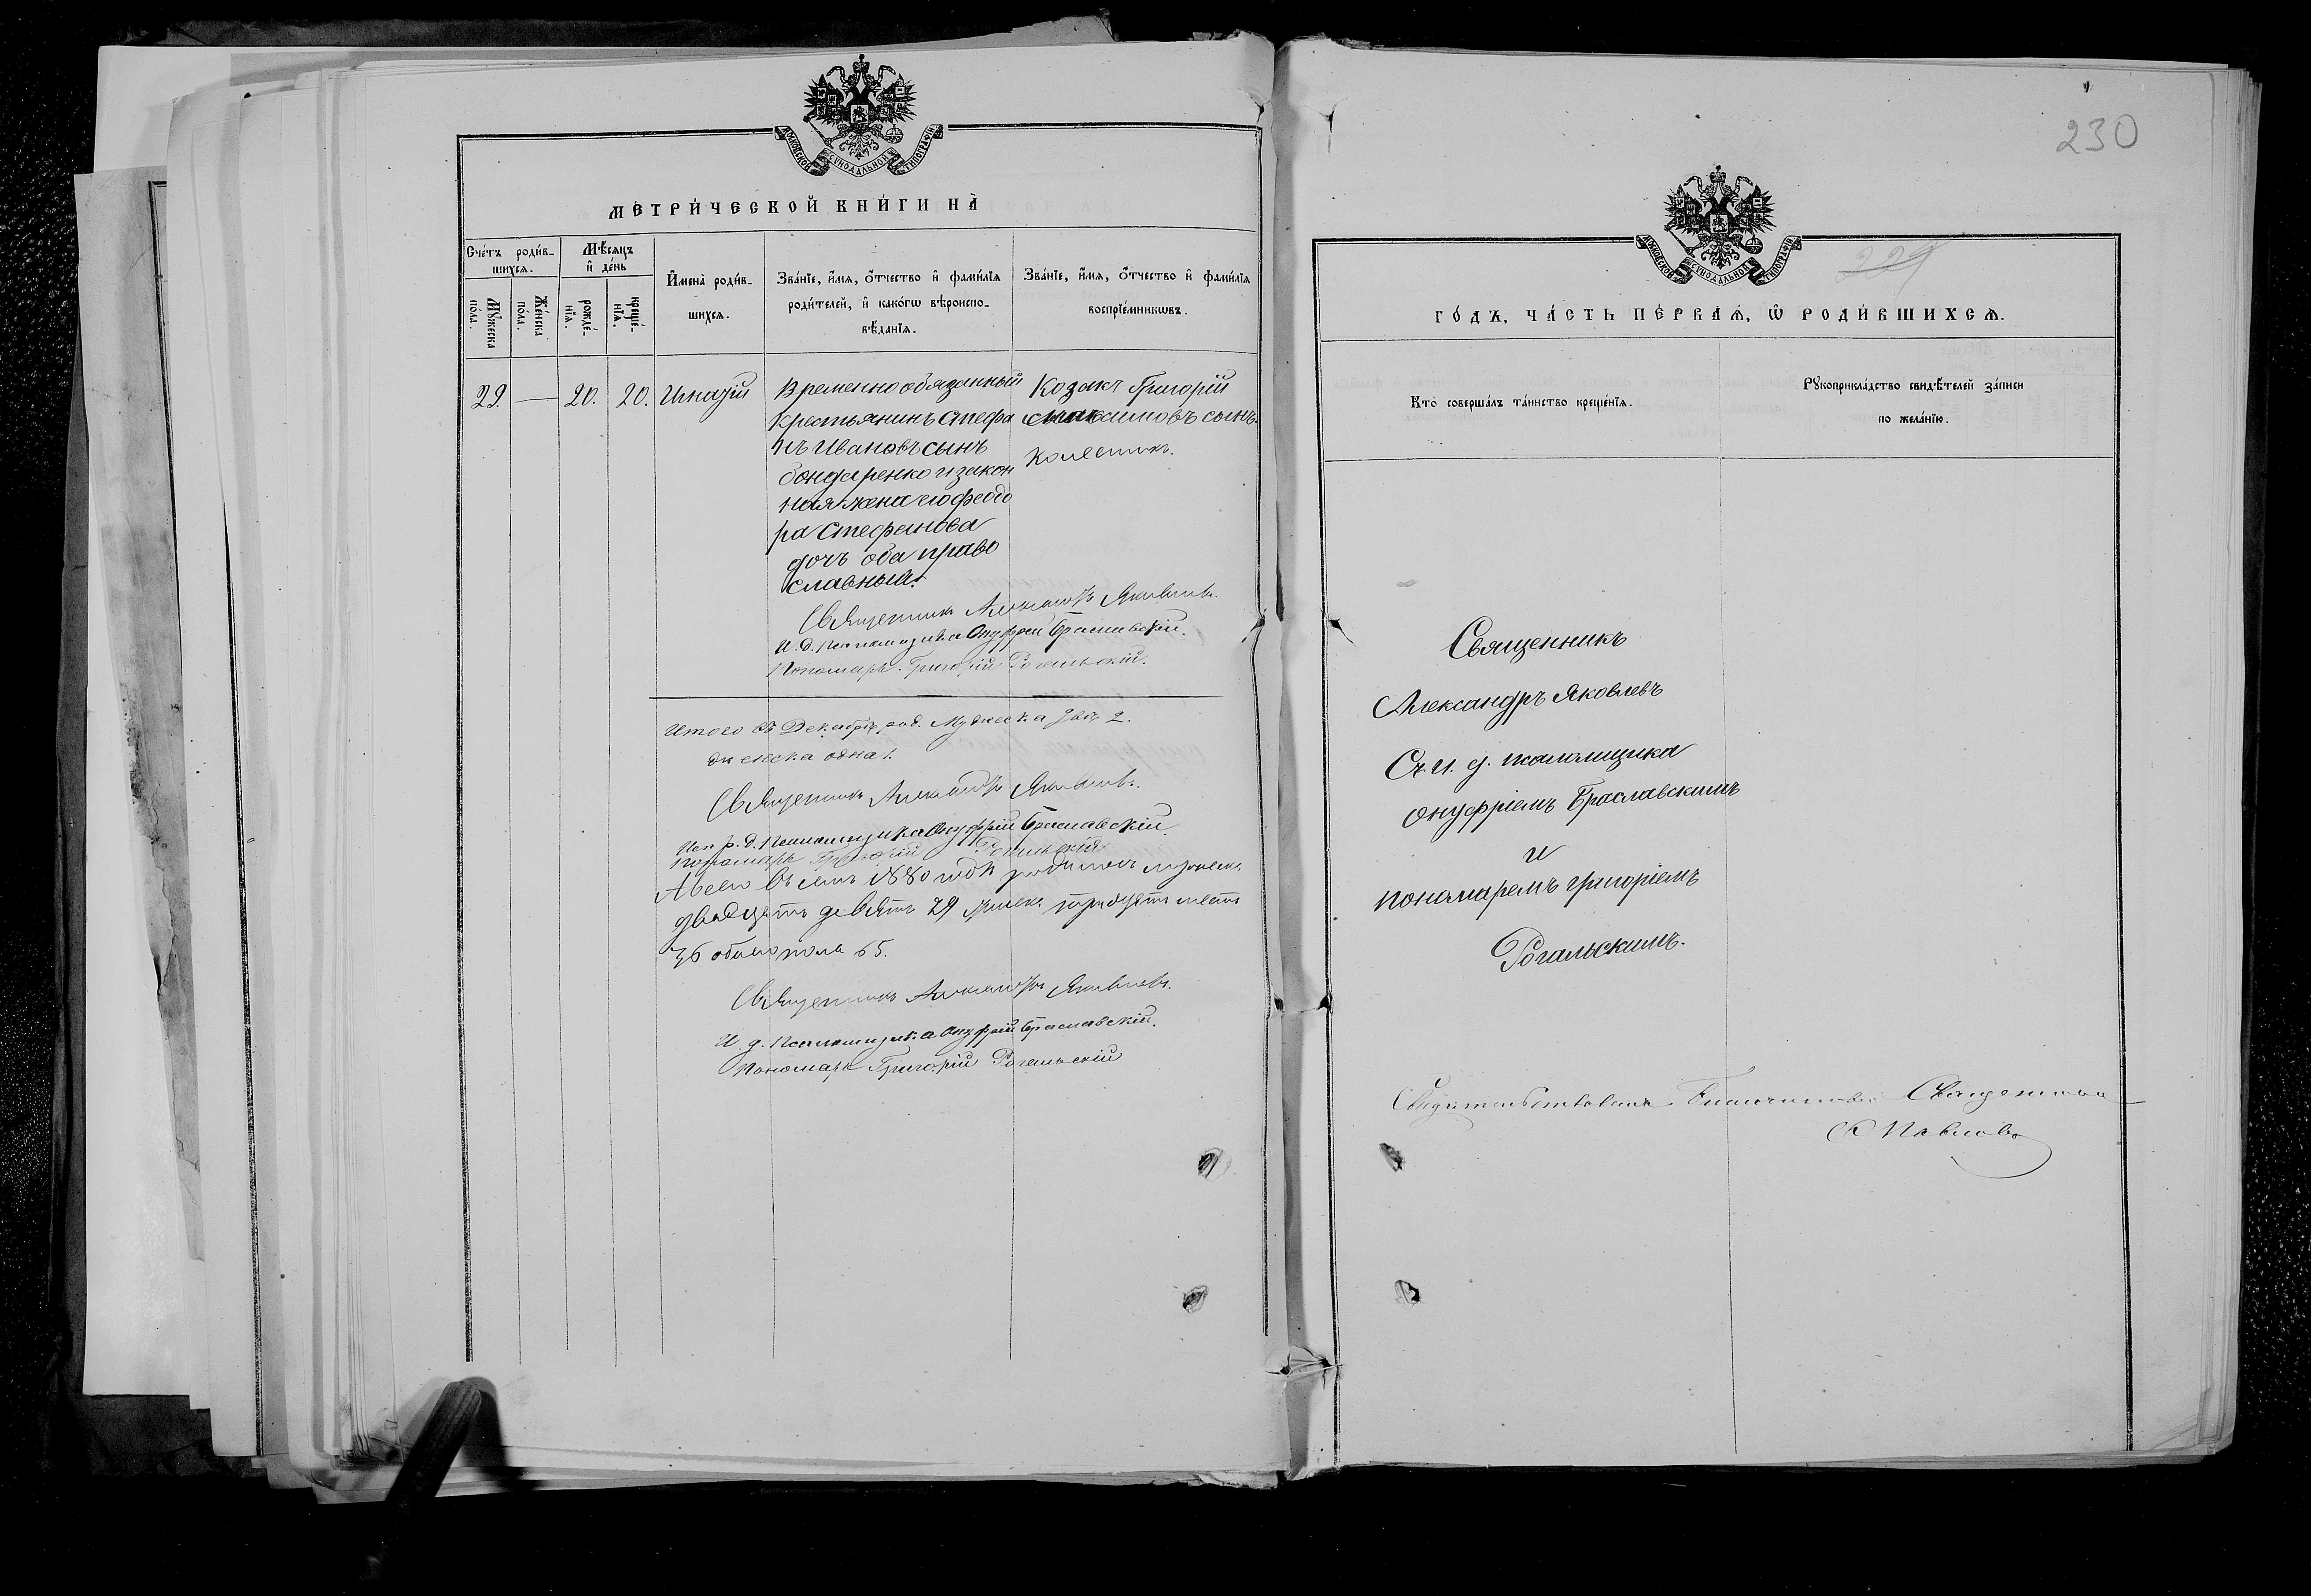 МОСКОВСКОЙ СѴНОДАЛЬНОЙ ТИПОГРАФІИ
МЕТРИ́ЧЕСКОЙ КНИ́ГИ НА̀
Сче́тъ роди́в-
шихся.
Мꙋ́жеска
по́ла.
Же́нска
по́ла.
Мѣ́сяцъ
и҆ де́нь
рожде́-
нїѧ.
креще́-
нїѧ.
И҆мена̀ роди́в-
шихсѧ.
Зва́нїе, и҆́мѧ, ѻ҆́тчество и҆ фами́лїѧ
роди́телей, и҆ како́гѡ вѣроиспо-
вѣ́данїѧ.
Зва́нїе, и҆́мѧ, ѻ҆́тчество и҆ фами́лїѧ
воспрїе́мникѡвъ.
29. — 20. 20. Игнатій
Временнообязанный
Крестьянинъ Стефа
нъ Ивановъ сынъ
бондаренко и закон
ная жена его феодо
ра Стефанова
дочь оба право
славный.
Козакъ Григорій
Максимовъ сынъ
Колесникъ.
Священникъ Александръ Яковлевъ.
И. д. Псаломщика Онуфрій Браславскій.
Пономарь Григорій Рогальскій.
Итого въ Декабрѣ род. Мужеска два 2.
женска одна 1.
Священникъ Александръ Яковлевъ.
Исп. д. Псаломщика Онуфрій Браславскій.
Пономарь Григорій Рогальскій
А всего въ семъ 1880 году родилось мужеска
двадцать девять 29 женска тридцать шесть
36 обоего пола 65.
Священникъ Александръ Яковлевъ.
И. д. Псаломщика Онуфрій Браславскій.
Пономарь Григорій Рогальскій
230
МОСКОВСКОЙ СѴНОДАЛЬНОЙ ТИПОГРАФІИ
229
ГО́ДЪ, ЧА́СТЬ ПЕ́РВАѦ, Ѡ҆ РОДИ́ВШИХСѦ.
Кто̀ соверша́лъ та́инство креще́нїѧ.
Рꙋкоприкла́дство свидѣ́телей за́писи
по жела́нїю.
Священникъ
Александръ Яковлевъ
Съ и. д. псаломщика
Онуфріемъ Браславскимъ
и
пономаремъ Григоріемъ
Рогальскимъ.
Свидѣтельствовалъ Благочинный Священникъ
Павловъ